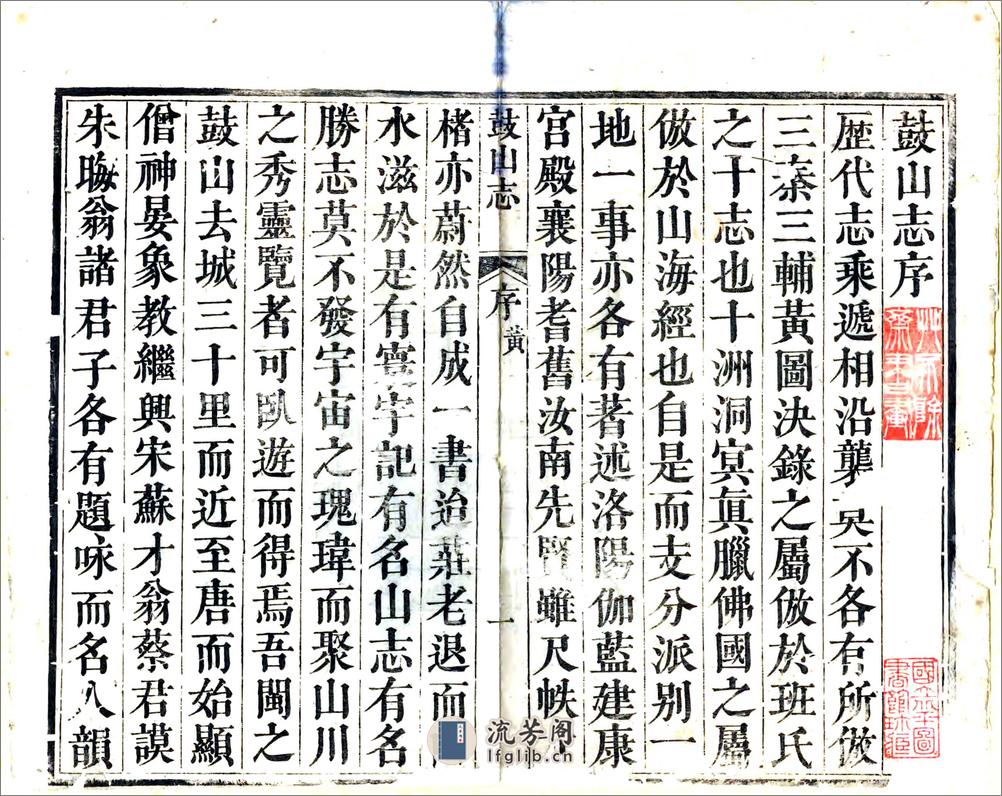 鼓山志序
歴代志乘遞相沿襲莫不各有所倣
三秦三輔黃圖決錄之屬倣於班氏
之十志也十洲洞冥眞臘佛國之屬
倣於山海經也自是而支分派别一
地一事亦各有著述洛陽伽藍建康
宫殿襄陽耆舊汝南先賢雖尺帙
鼓山志
序
黃
一
楮亦蔚然自成一書迨莊老退而
水滋於是有寰宇記有名山志有名
勝志莫不發宇宙之瑰瑋而聚山川
之秀靈覽者可臥遊而得焉吾閩之
鼓山去城三十里而近至唐而始顯
僧神晏象教繼興宋蘇才翁蔡君謨
朱晦翁諸君子各有題咏而名入韻
流芳阁
lfglib.cn